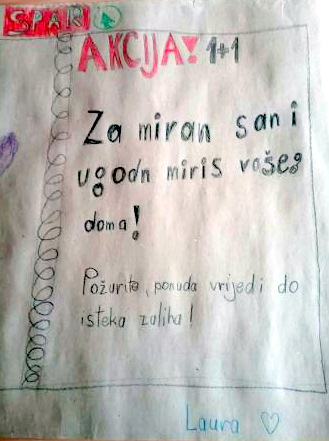 SPAR
AKCIJA! 1+1
Za miran san i
ugodn miris vašeg
doma!
Požurite, ponuda vrijedi do
isteka zaliha!
Laura ♡